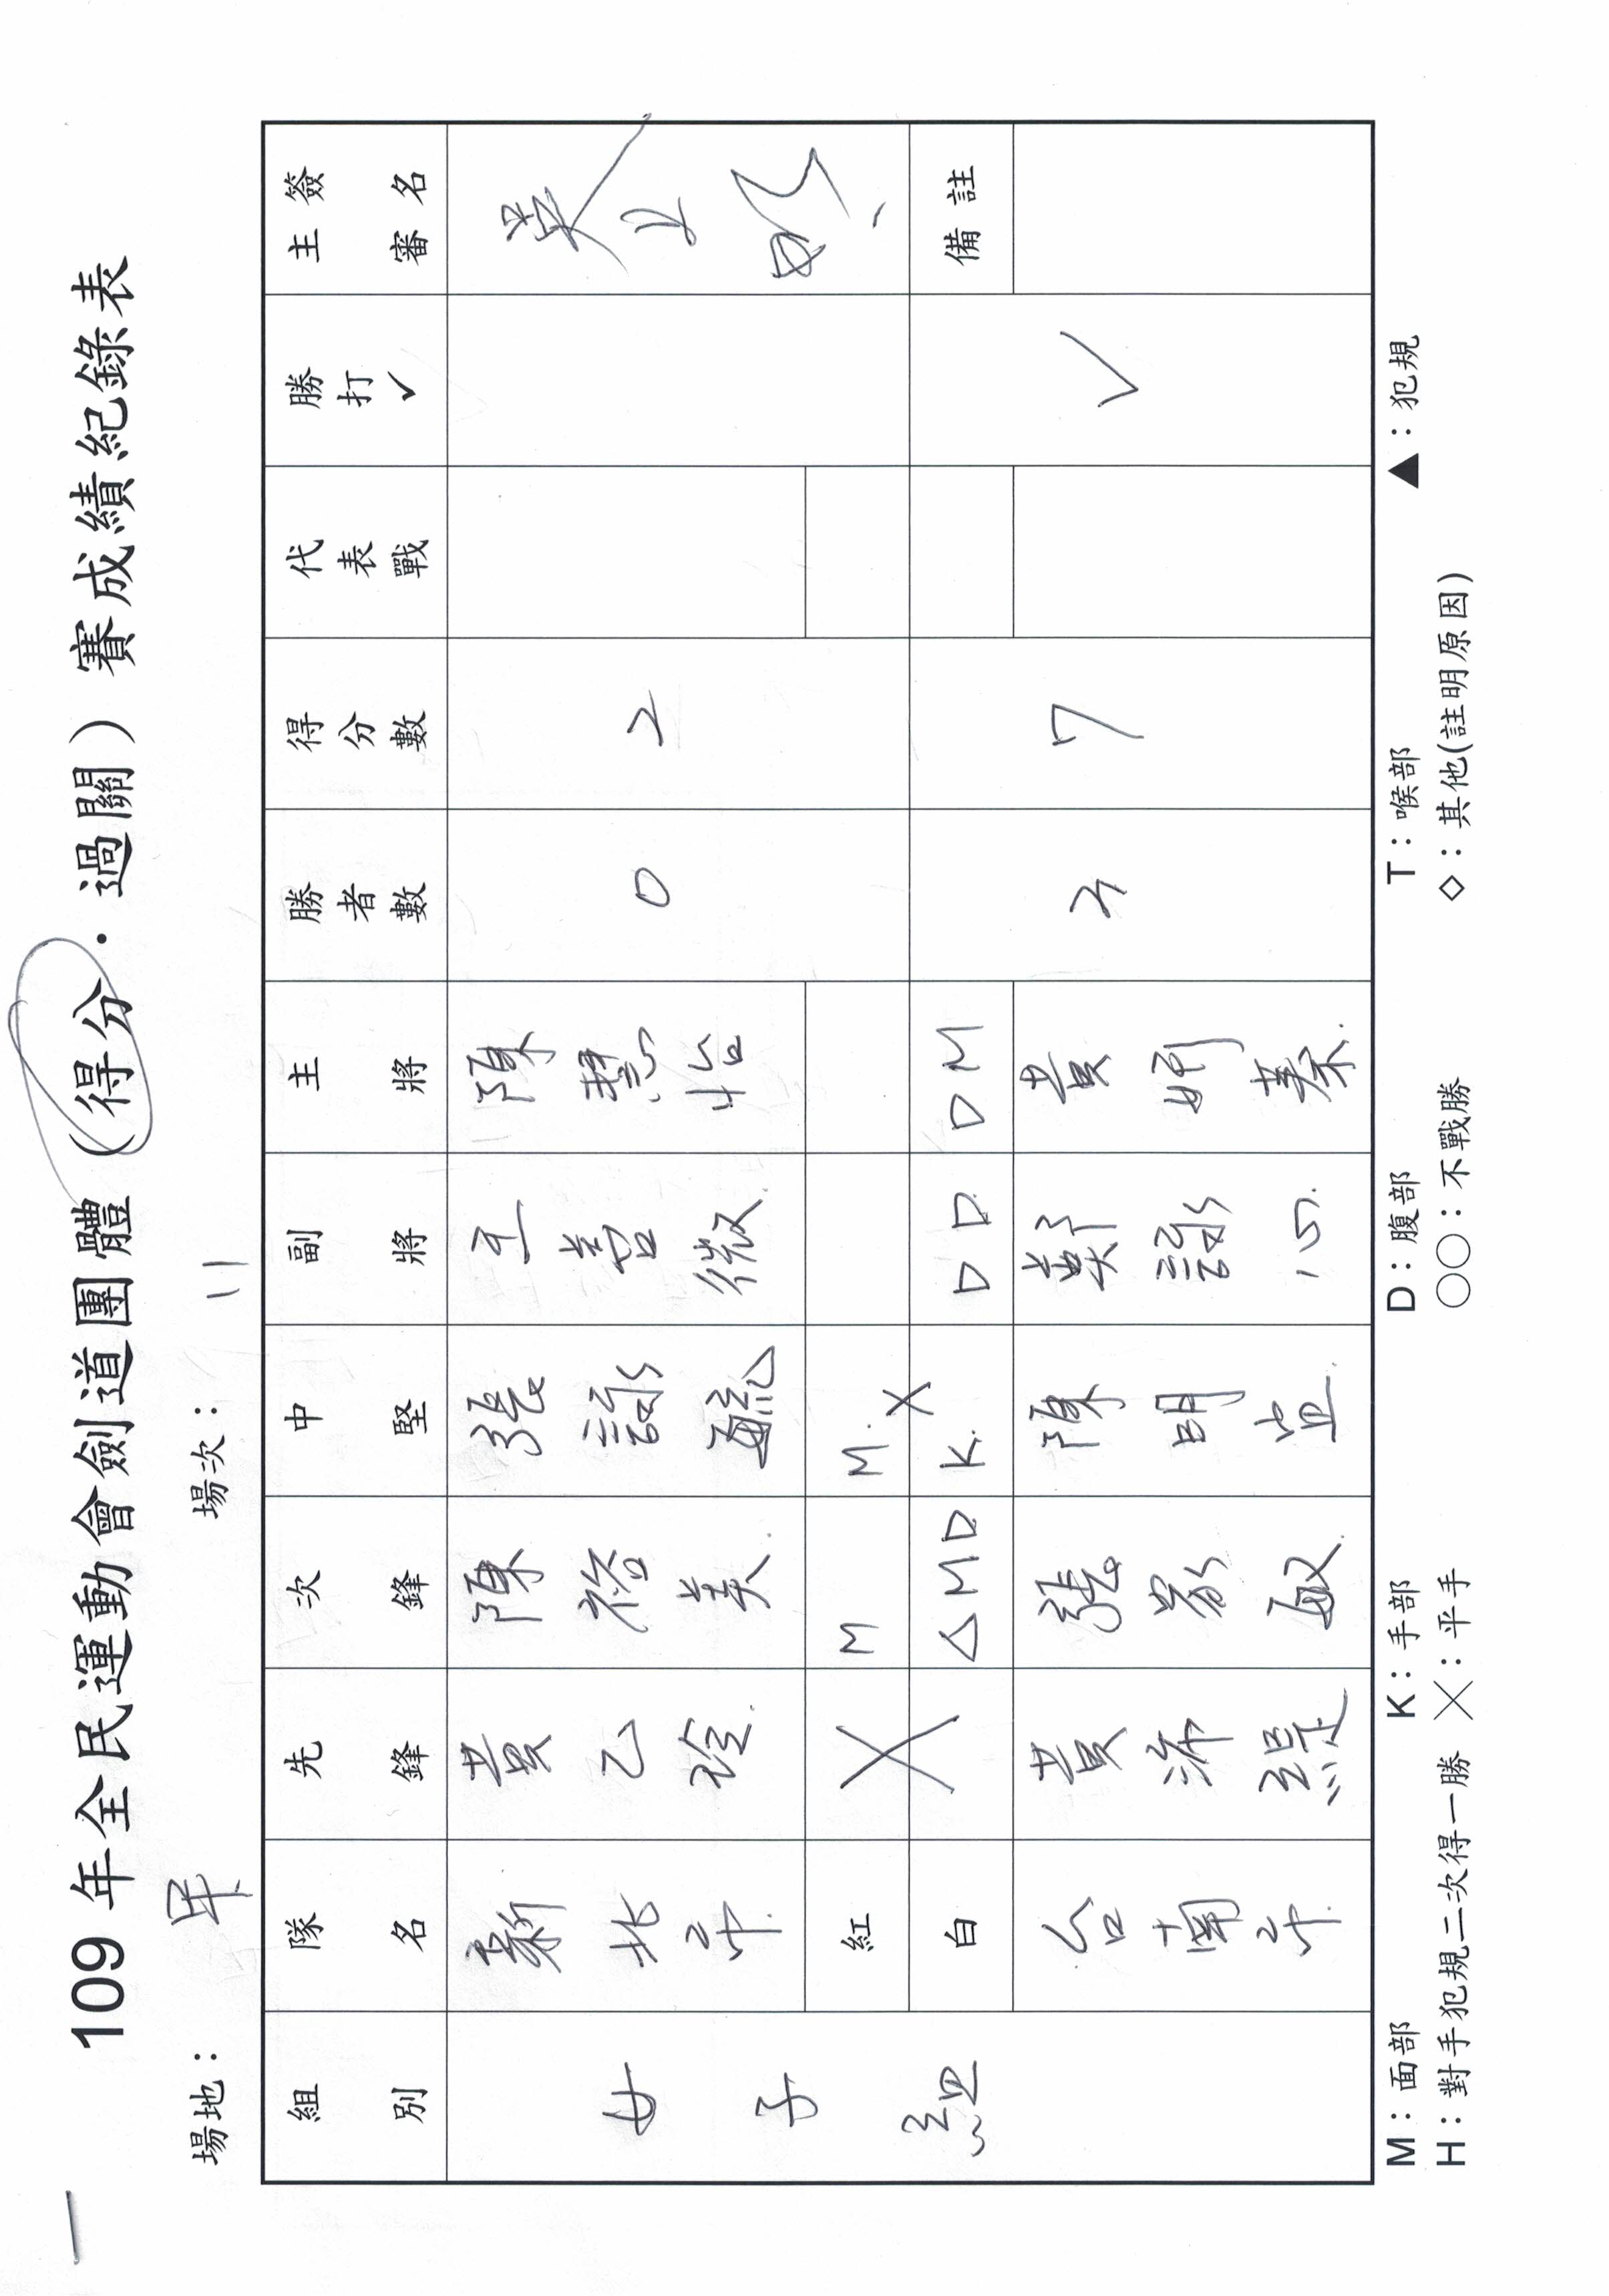 109 年全民運動會劍道團體（得分．過關）賽成績紀錄表
場地： 場次：11
組別 隊名 先鋒 次鋒 中堅 副將 主將 勝者數 得分數 代表戰 勝打✓ 主審簽名
女子組 新北市 黃乙玲 陳裕美 張詠毓 王薏微 陳慧怡 0 2
紅 X M M. X
白 △MD K. DD DM 備註
台南市 黃渧緹 張家敏 陳明壹 鄭詠心 黃姵蓁 7 ✓
M：面部 K：手部 D：腹部 T：喉部 ▲：犯規
H：對手犯規二次得一勝 ╳：平手 ○○：不戰勝 ◇：其他(註明原因)